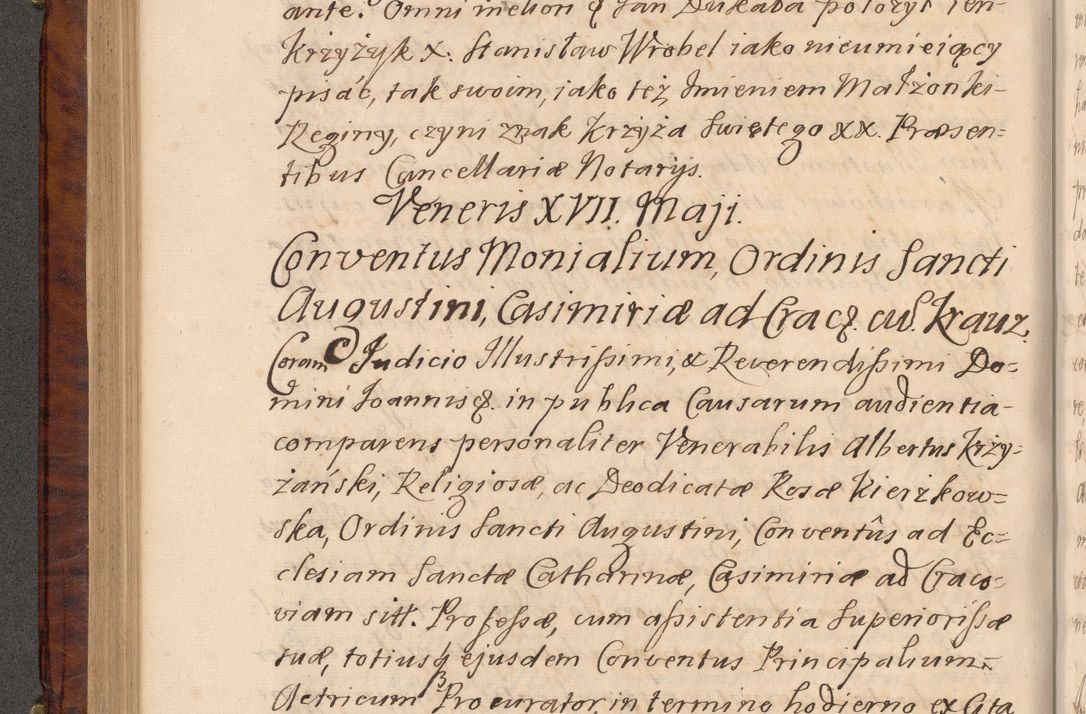 ante. Omni melion ꝗ Jan Dukada położył ten
Krzyżyk X. Stanisław Wrobel iako nieumieiący
pisáć, tak swoim, iako też Imieniem Małżonki
Reginy, czyni znak Krzyża Swiętego XX. Præsen=
tibus Cancellariæ Notarijs.
Veneris XVII. Maji.
Conventus Monialium, Ordinis Sancti
Augustini, Casimiriæ ad Crac. Krauz.
Coram Judicio Illustrissimi, & Reverendissimi Do=
mini Joannis &. in publica Causarum audientia
comparens personaliter Venerabilis Albertus Krży=
żański, Religiosæ, ac Deodicatæ Rosæ Kierżkow=
ska, Ordinis Sancti Augustini, Conventûs ad Ec=
clesiam Sanctæ Catharinæ, Casimiriæ ad Craco=
viam sitt. Professæ, cum assistentia Superiorissæ
suæ, totiusq ejusdem Conventus Principalium
Actricum Procurator, in termino hodierno ex Cita